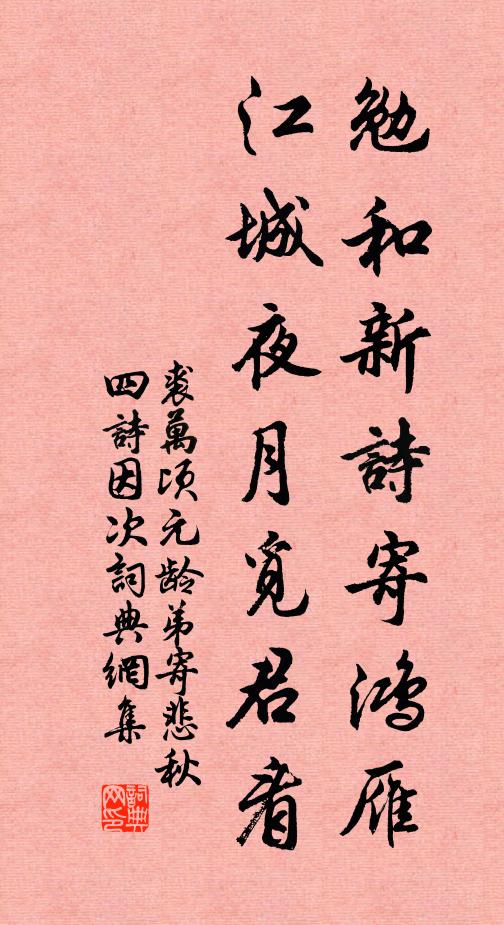 勉和新詩寄鴻雁
江城夜月覓君看
裘萬頃元龄弟寄悲秋
四詩因次詞典網集
詞典
网印